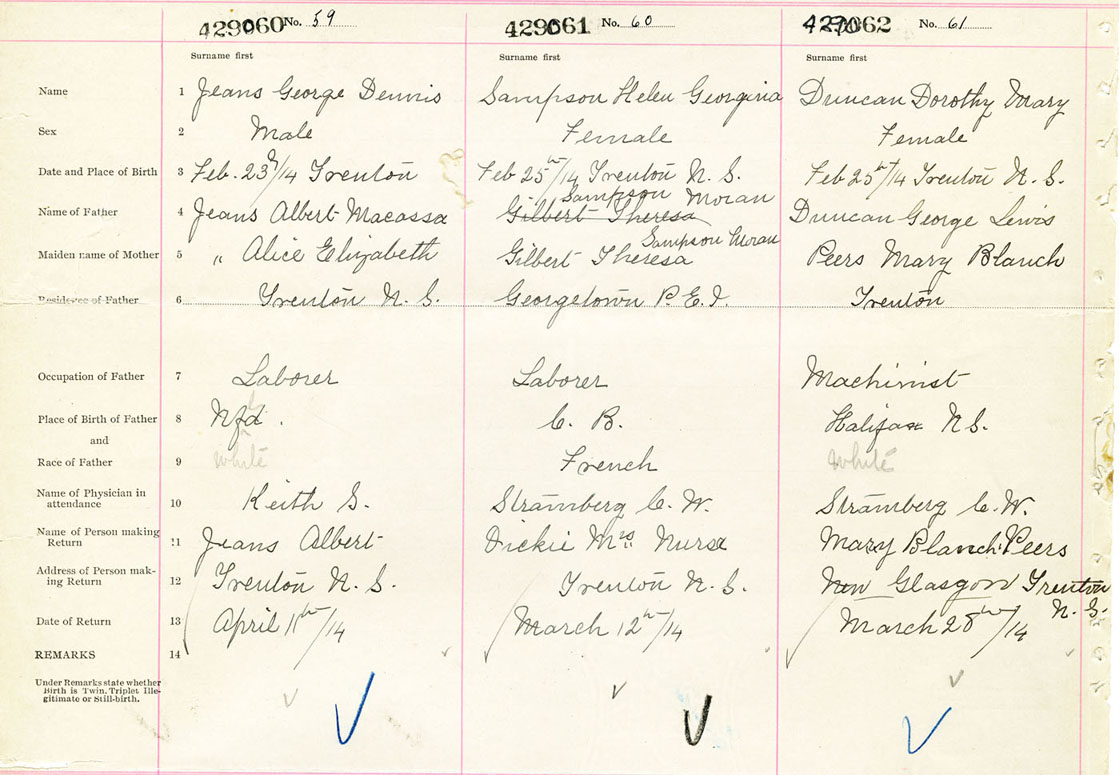 429060 No. 59 429061 No. 60 429062 No. 61
Surname first Surname first Surname first
Name 1 Jeans George Dennis Sampson Helen Georgina Duncan Dorothy Mary
Sex 2 Male Female Female
Date and Place of Birth 3 Feb. 23/14 Trenton Feb 25th/14 Trenton N. S. Feb 25th/14 Trenton N. S.
Sampson Moran
Name of Father 4 Jeans Albert Macassa Gilbert Theresa Duncan George Lewis
Sampson Moran
Maiden name of Mother 5 " Alice Elizabeth Gilbert Theresa Peers Mary Blanch
Residence of Father 6 Trenton N. S. Georgetown P. E. I. Trenton
Occupation of Father 7 Laborer Laborer Machinist
Place of Birth of Father 8 Nfd. C. B. Halifax N.S.
and
Race of Father 9 White French White
Name of Physician in
attendance 10 Keith S. Stramberg C. W. Stramberg C. W.
Name of Person making
Return 11 Jeans Albert Dickie Mrs Nurse Mary Blanch Peers
Address of Person mak-
ing Return 12 Trenton N. S. Trenton N. S. New Glasgow Trenton
N. S.
Date of Return 13 April 11th/14 March 12th/14 March 28th/14
REMARKS 14
Under Remarks state whether
Birth is Twin, Triplet Ille-
gitimate or Still-birth.